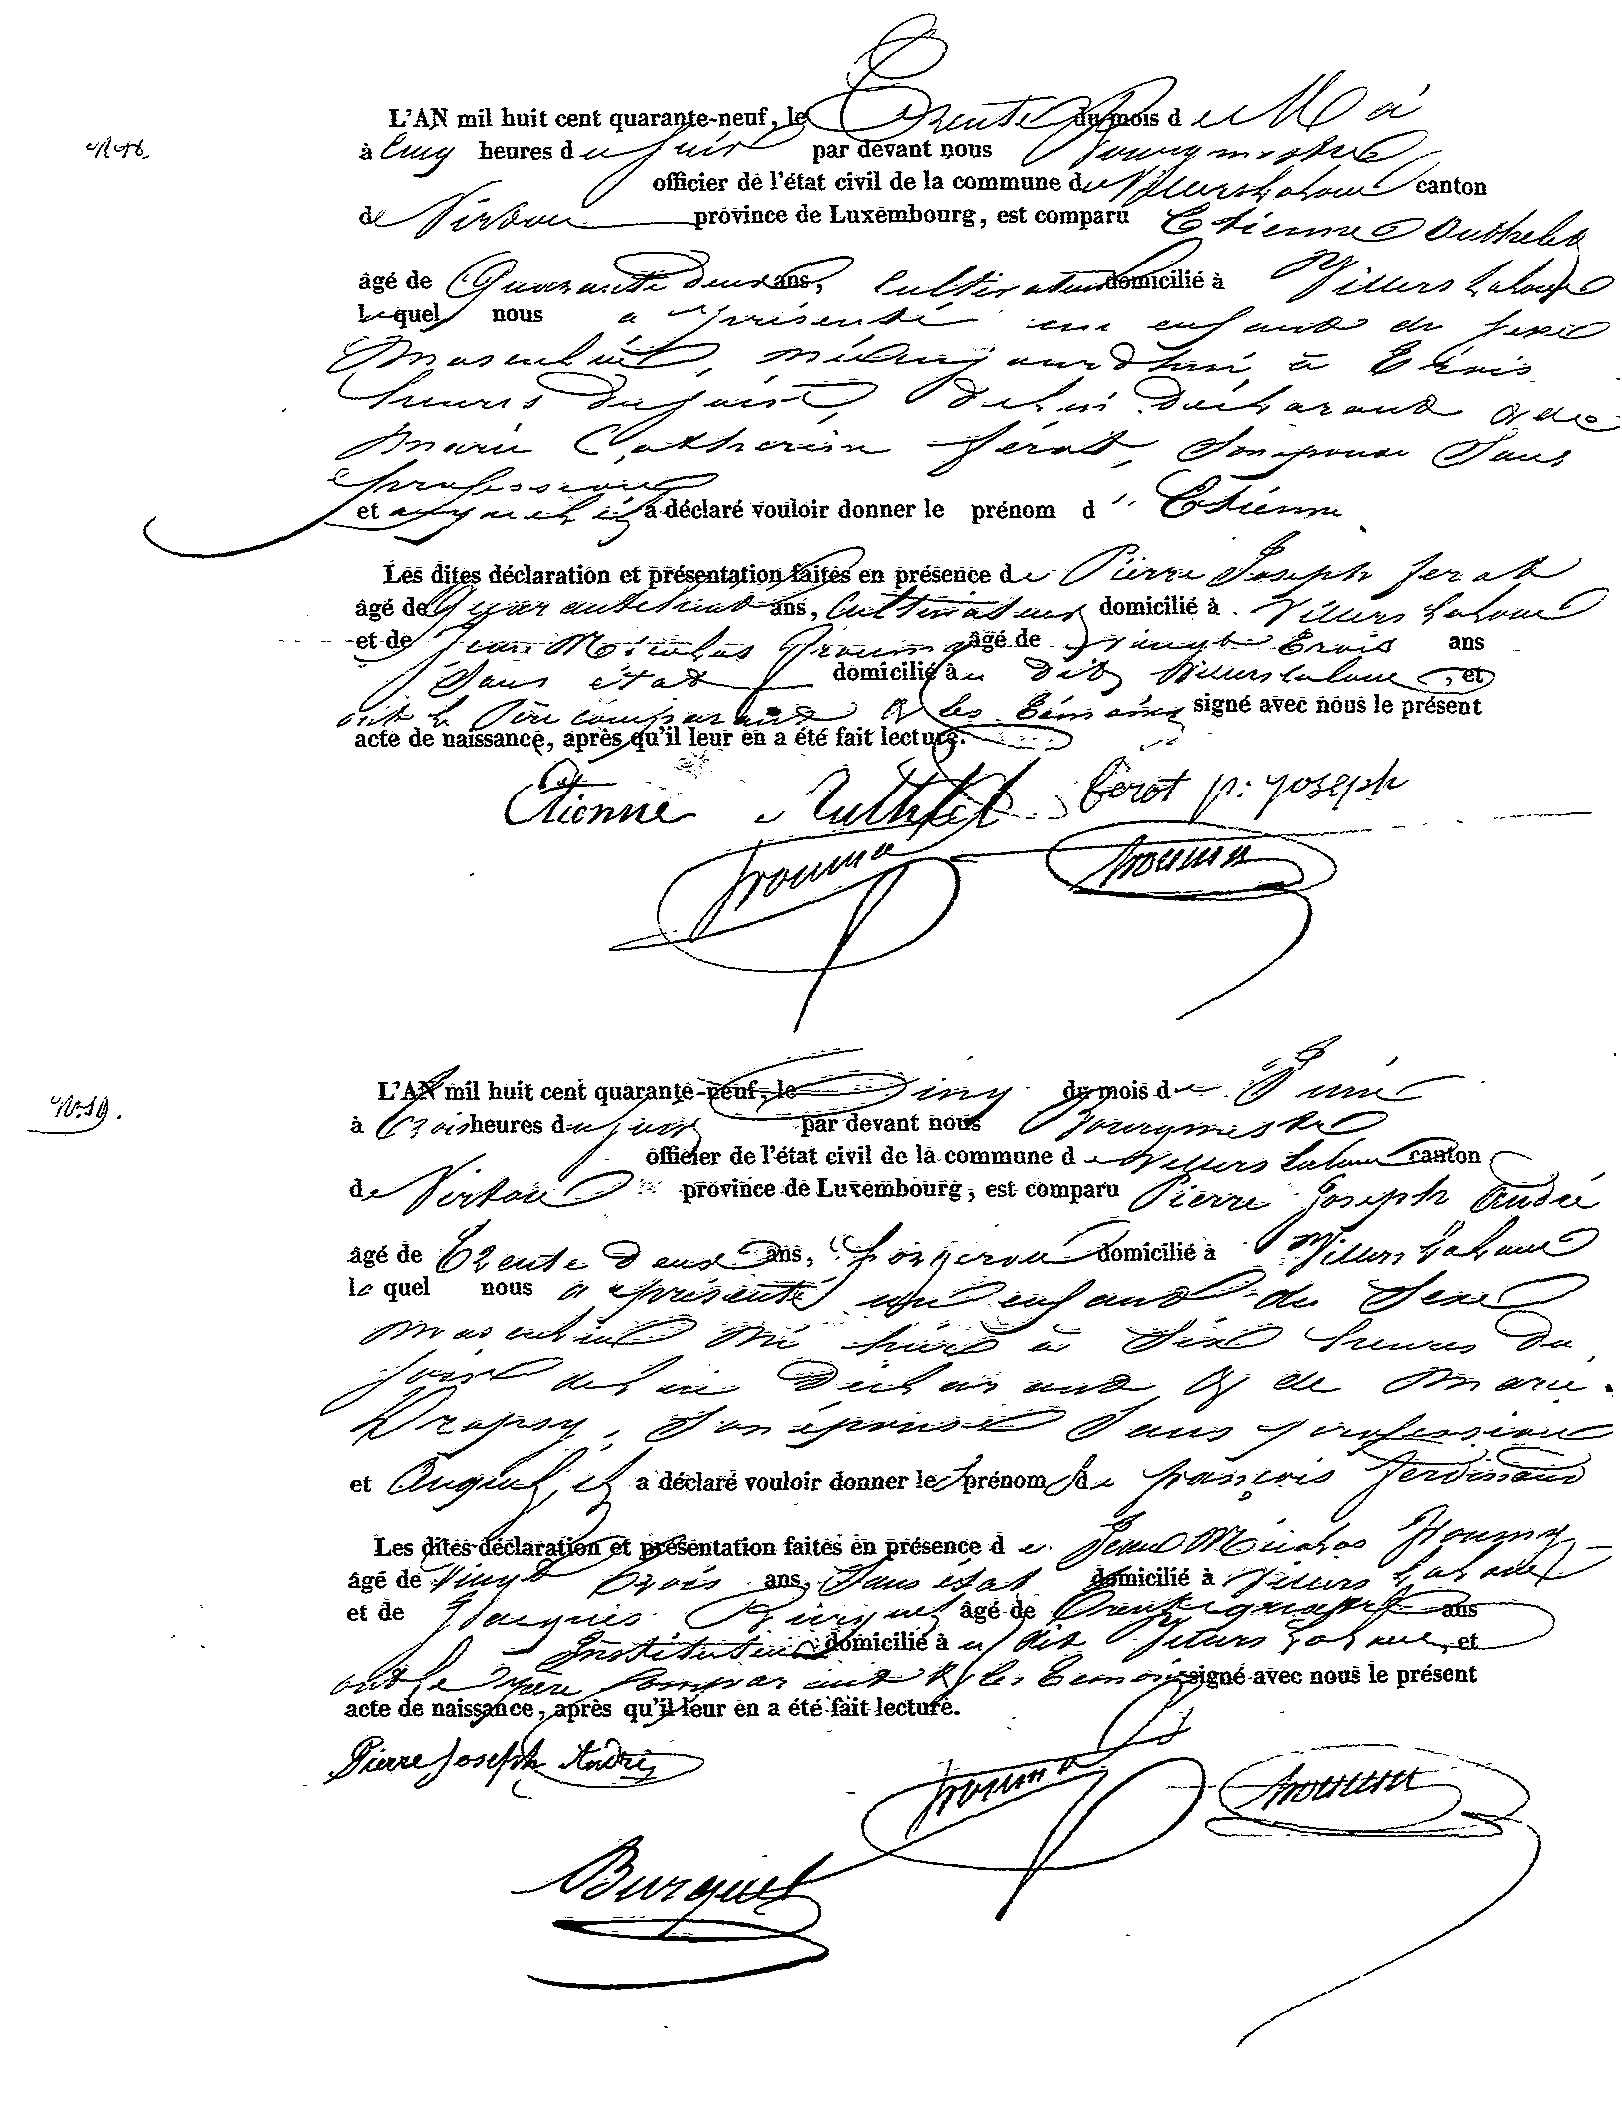 L'AN mil huit cent quarante-neuf, le Trente du mois de Mai
N° 18.
à Cinq heures du soir par devant nous Bourgmestre
officier de l'état civil de la commune de Villers la loue canton
de Virton province de Luxembourg, est comparu Etienne Outhelet
âgé de Quarante deux ans, Cultivateur domicilié à Villers la loue
lequel nous a présenté un enfant du sexe
Masculin, né aujourd'hui à trois
heures du soir, de lui déclarant & de
Marie Catherine Férot, son épouse sans
profession
et auquel il a déclaré vouloir donner le prénom d'' Etienne
Les dites déclaration et présentation faites en présence de Pierre Joseph ferot
âgé de Quarante huit ans, Cultivateur domicilié à Villers la loue
et de Jean Nicolas âgé de vingt trois ans
Sans état domicilié au dit Villers la loue, et
ont le Père comparant & les témoins signé avec nous le présent
acte de naissance, après qu'il leur en a été fait lecture.
Etienne Ferot p: joseph
L'AN mil huit cent quarante-neuf, le Cinq du mois de Juin
N° 19.
à trois heures du soir par devant nous Bourgmestre
officier de l'état civil de la commune de Villers la loue canton
de Virton province de Luxembourg, est comparu Pierre Joseph André
âgé de trente deux ans, forgeron domicilié à Villers la loue
lequel nous a présenté un enfant du sexe
masculin né hier à six heures du
soir de lui déclarant & de Marie
Dropsy, son épouse sans profession
et Auquel il a déclaré vouloir donner les prénoms de françois ferdinand
Les dites déclaration et présentation faites en présence de Jean Nicolas
âgé de vingt trois ans, Sans état domicilié à Villers la loue
et de Jacques Burquel âgé de trente quatre ans
Instituteur domicilié au dit Villers la loue, et
ont le père comparant & les témoins signé avec nous le présent
acte de naissance, après qu'il leur en a été fait lecture.
Pierre Joseph André
Burquel